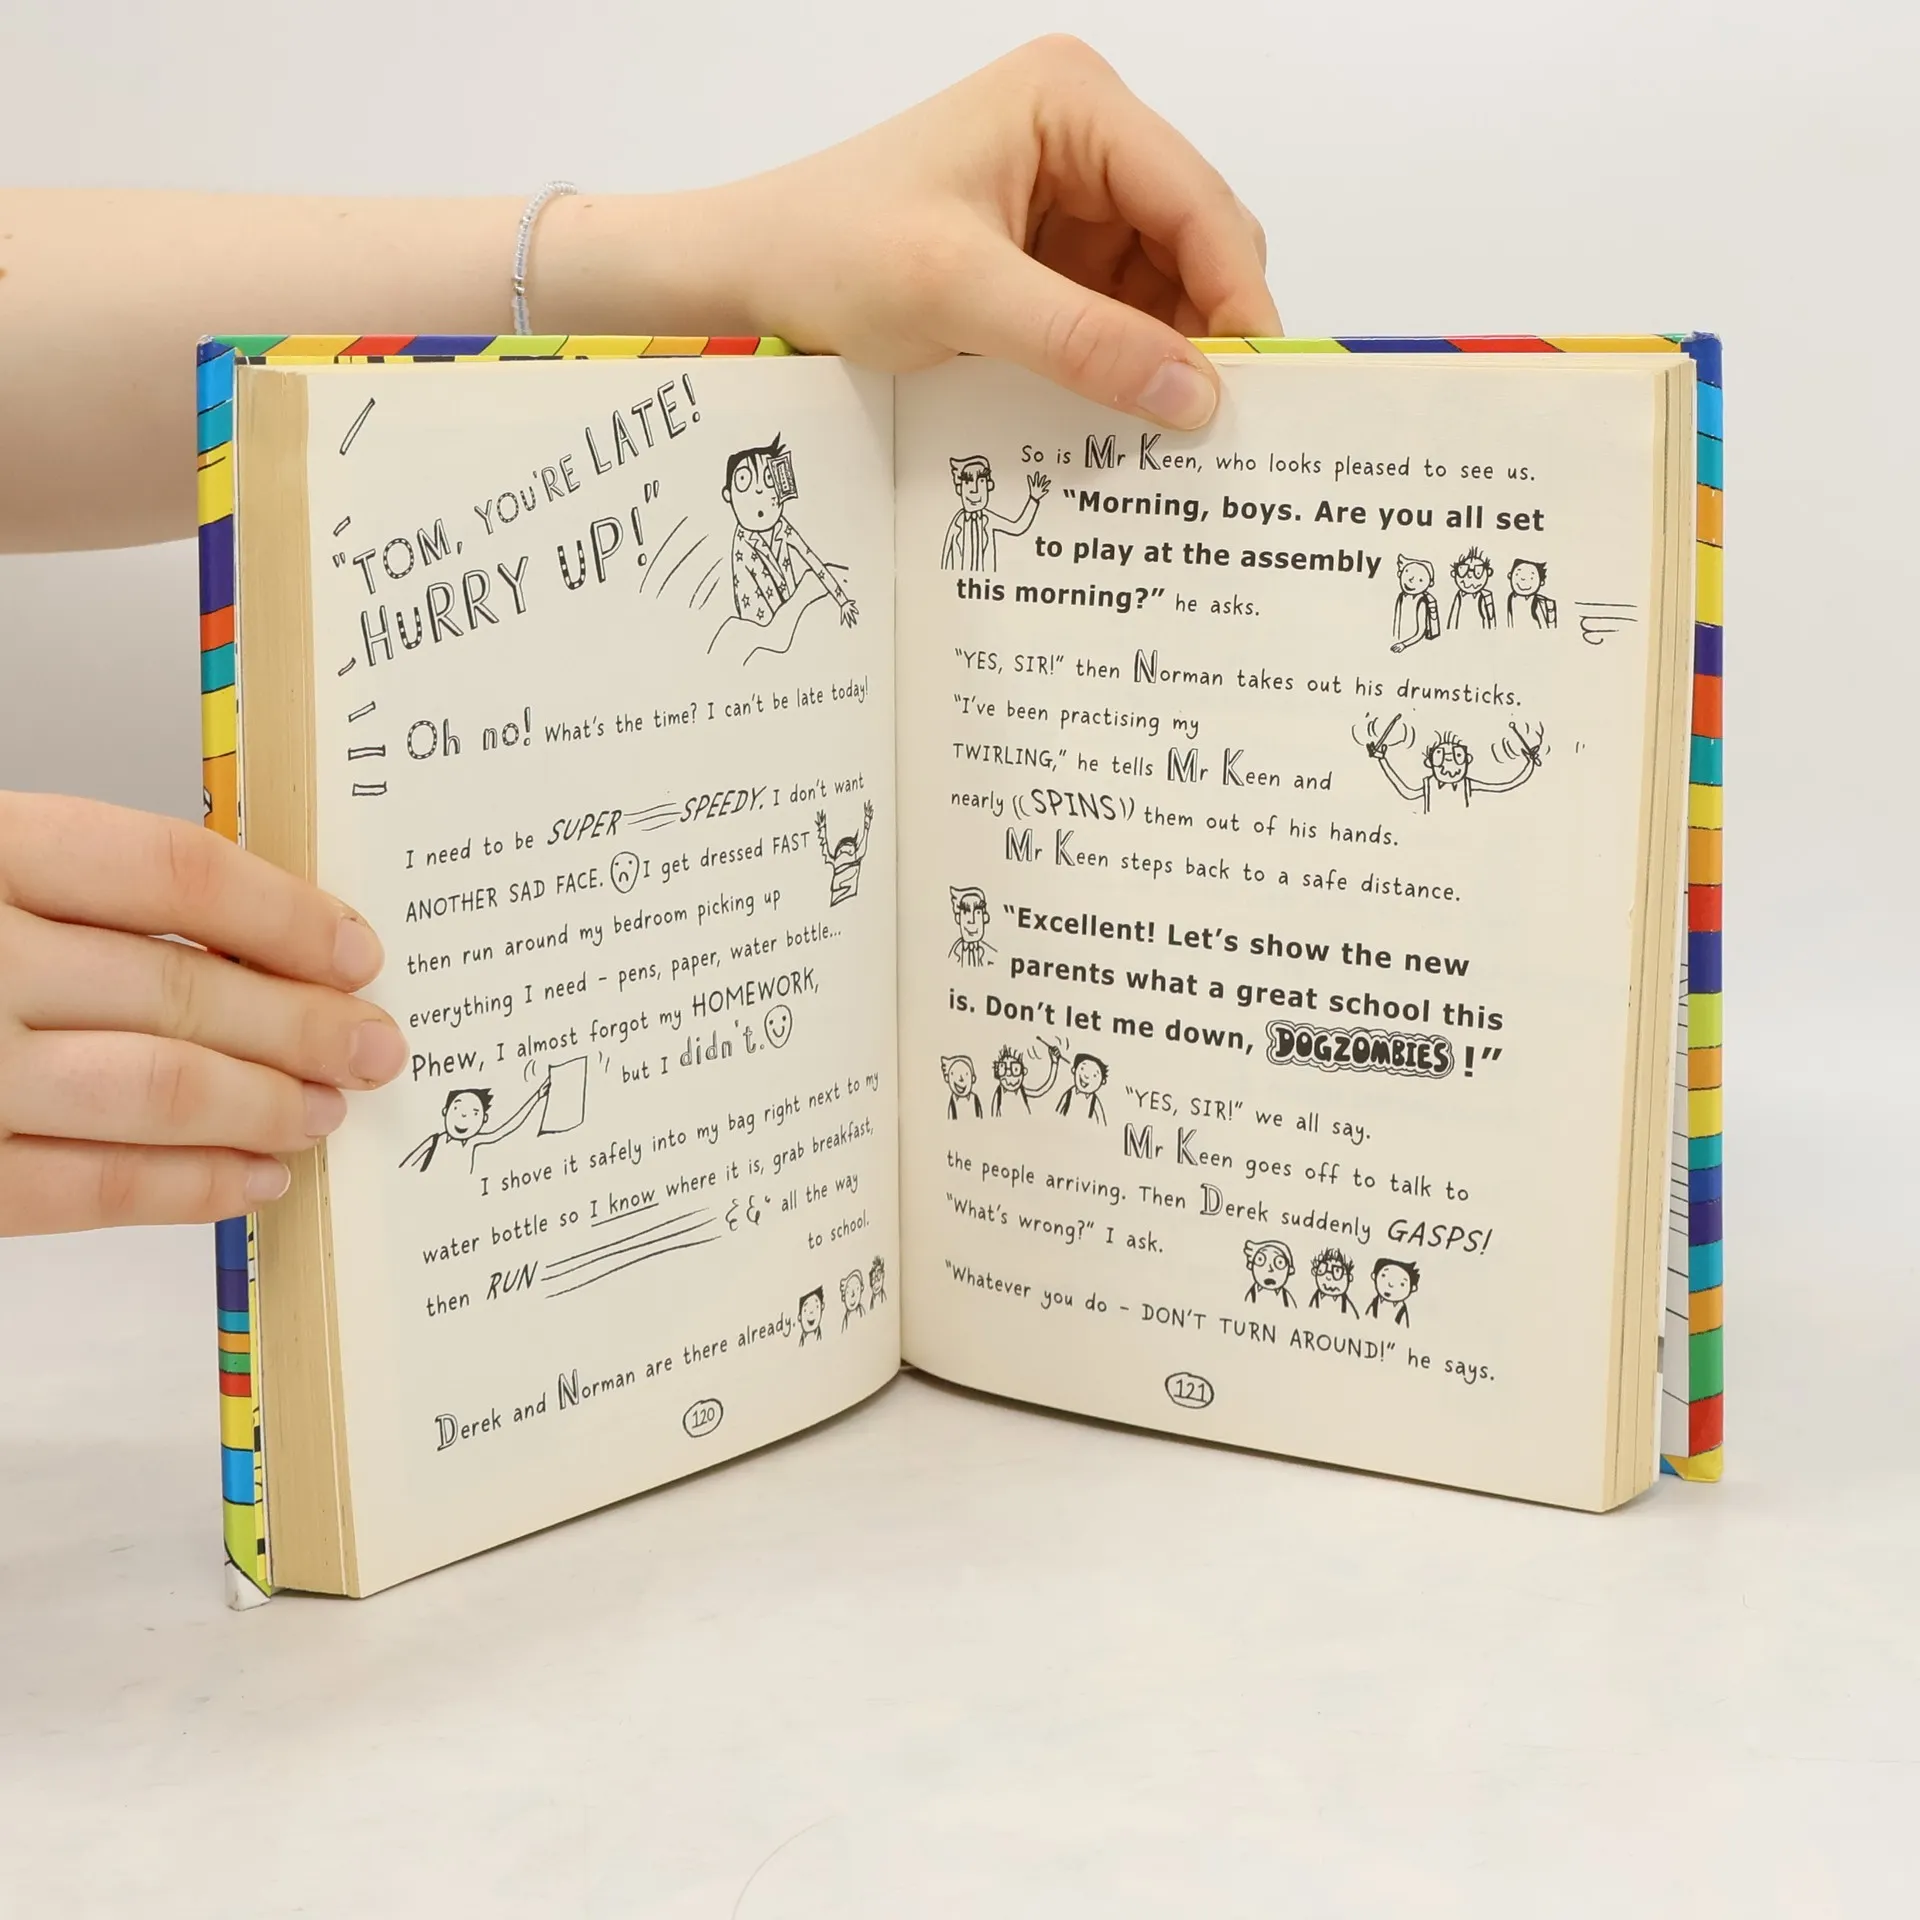 "TOM, YOU'RE LATE!
HURRY UP!"
Oh no! What's the time? I can't be late today!
I need to be SUPER SPEEDY. I don't want
ANOTHER SAD FACE. I get dressed FAST
then run around my bedroom picking up
everything I need – pens, paper, water bottle...
Phew, I almost forgot my HOMEWORK,
but I didn't.
I shove it safely into my bag right next to my
water bottle so I know where it is, grab breakfast,
then RUN all the way
to school.
Derek and Norman are there already.
120
So is Mr Keen, who looks pleased to see us.
"Morning, boys. Are you all set
to play at the assembly
this morning?" he asks.
"YES, SIR!" then Norman takes out his drumsticks.
"I've been practising my
TWIRLING," he tells Mr Keen and
nearly SPINS them out of his hands.
Mr Keen steps back to a safe distance.
"Excellent! Let's show the new
parents what a great school this
is. Don't let me down, DOGZOMBIES!"
"YES, SIR!" we all say.
Mr Keen goes off to talk to
the people arriving. Then Derek suddenly GASPS!
"What's wrong?" I ask.
"Whatever you do – DON'T TURN AROUND!" he says.
121